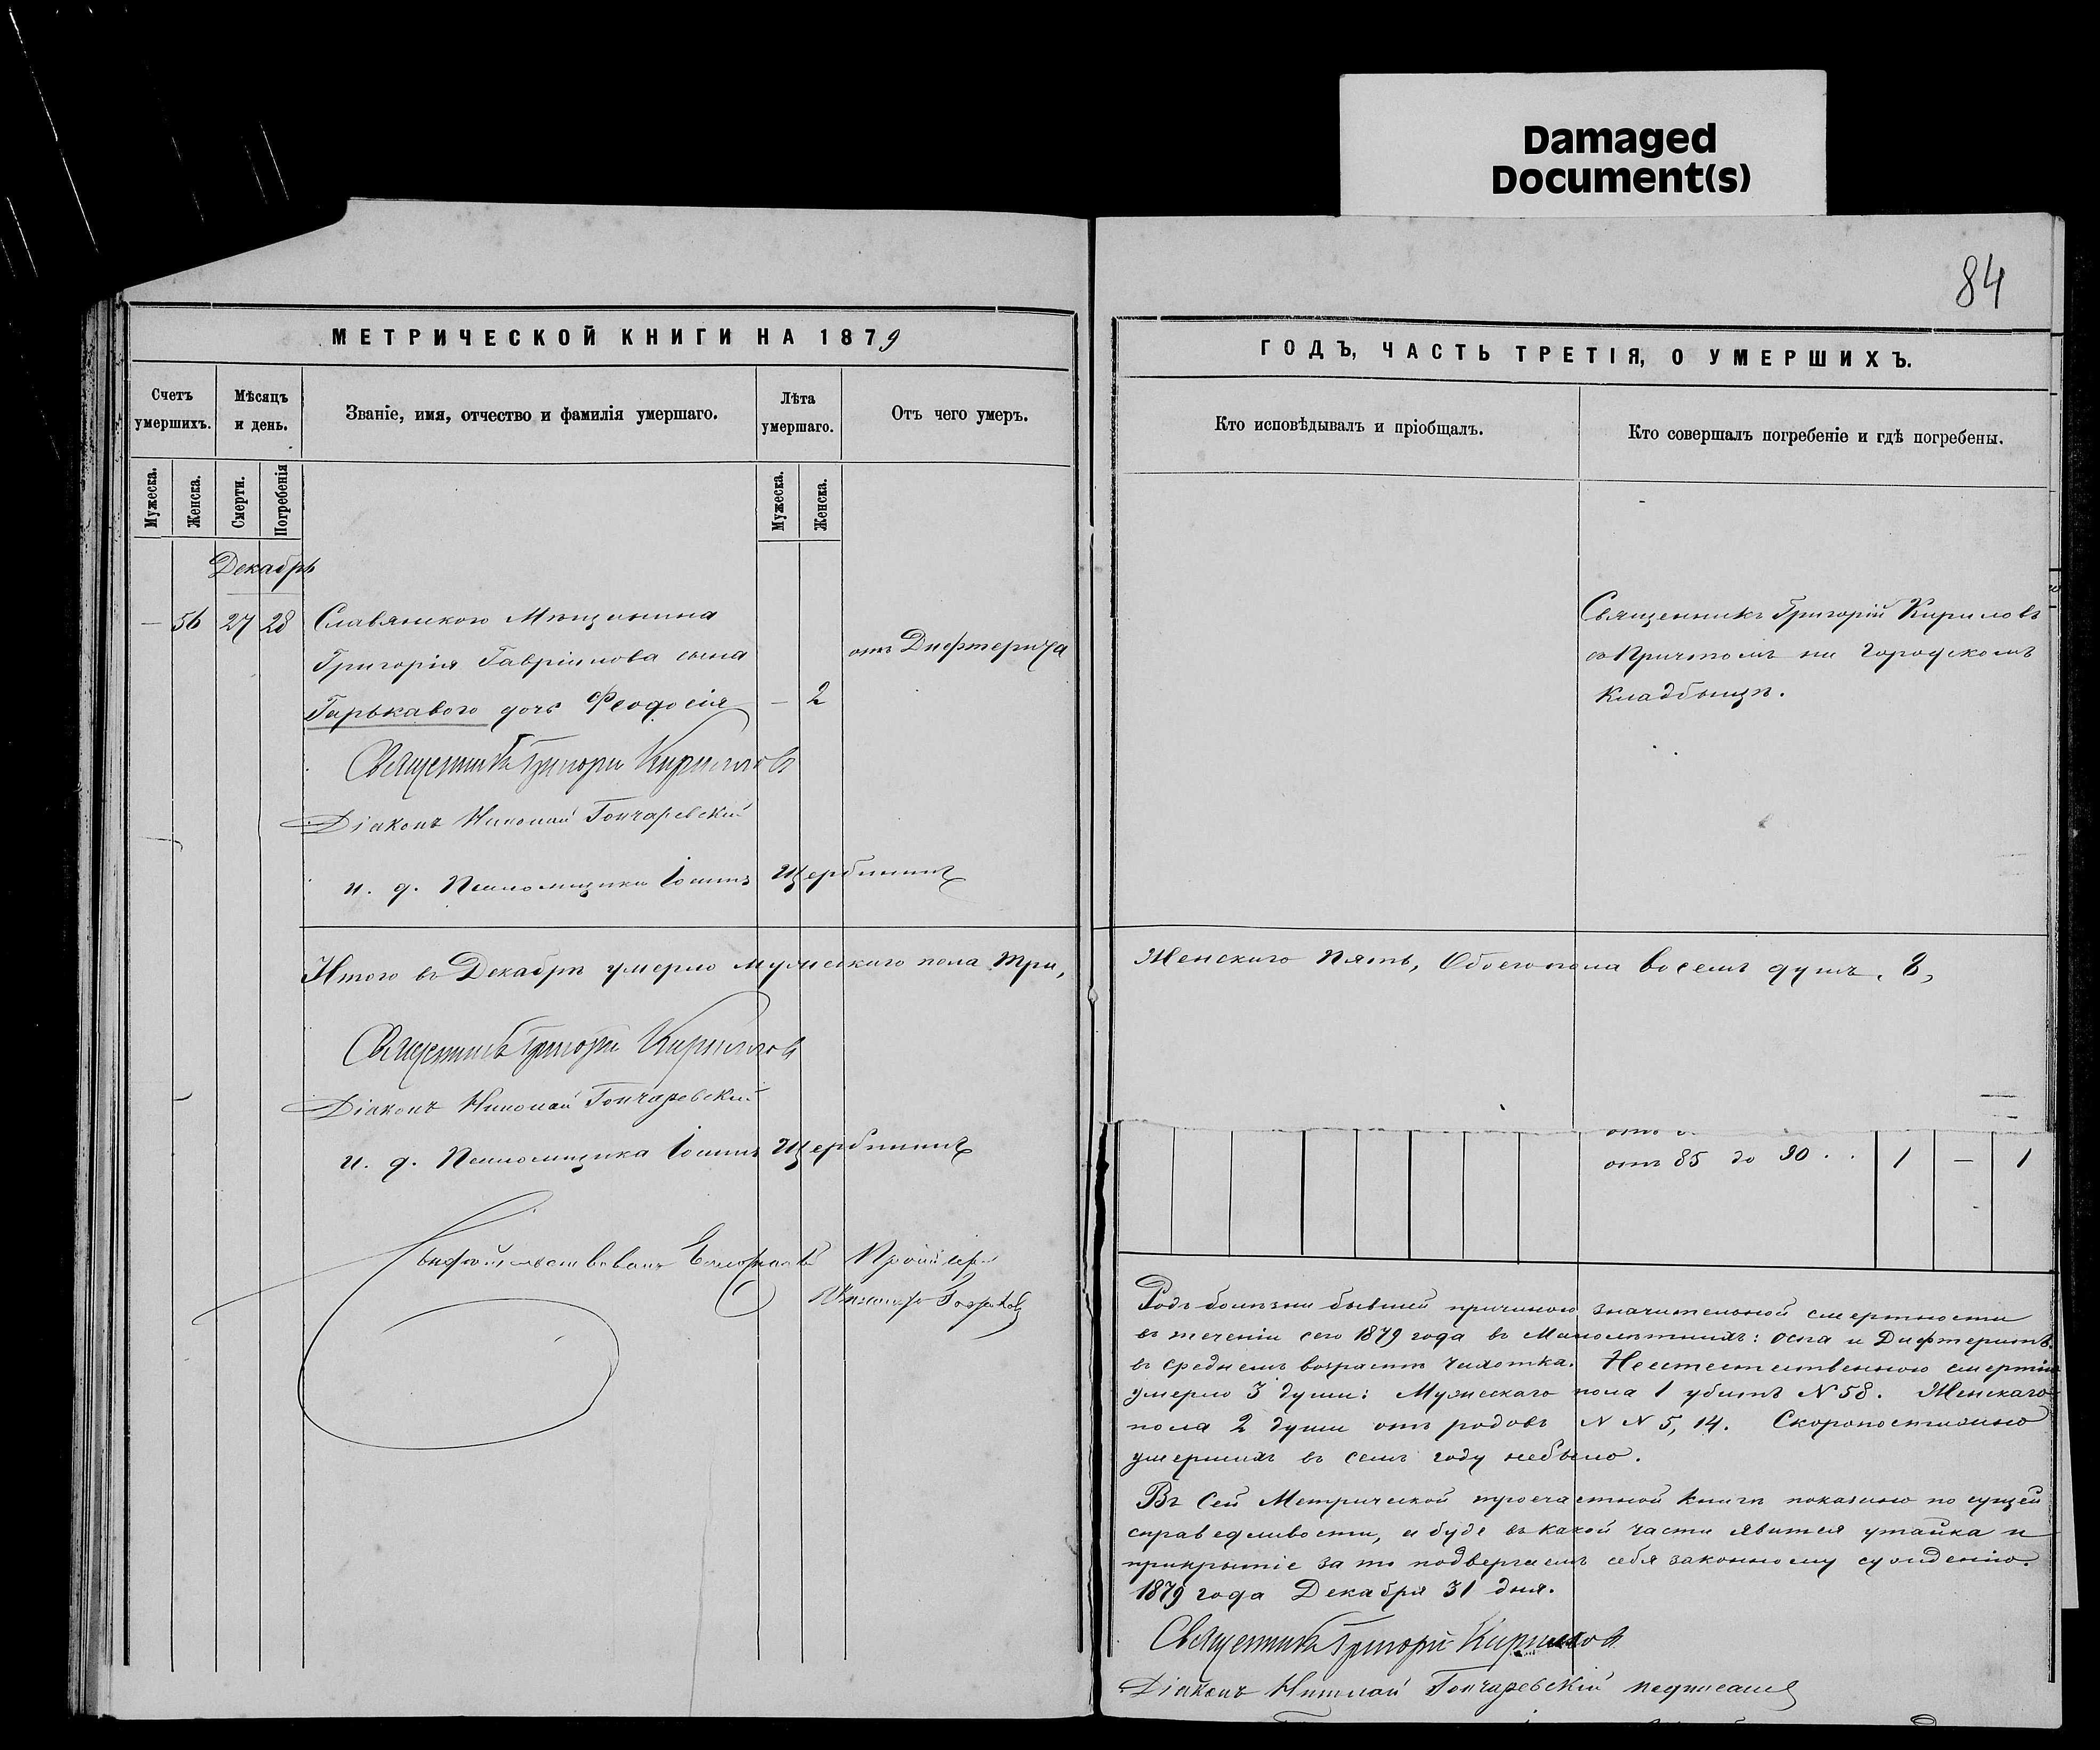 Damaged
Document(s)
84
МЕТРИЧЕСКОЙ КНИГИ НА 1879
Счетъ умершихъ.
Мѣсяцъ и день.
Званіе, имя, отчество и фамилія умершаго.
Лѣта умершаго.
Отъ чего умеръ.
Мужеска.
Женска.
Смерти.
Погребенія
Мужеска.
Женска.
Декабрь
— 56 27 28 Славянского Мѣщанина
Григорія Гавріилова сына
отъ Дифтерита
Гарькавого дочь Феодосія — 2
Священникъ Григорій Кириловъ
Діаконъ Николай Гончаревскій
и. д. Псаломщика Іоаннъ Щербининъ
Итого въ Декабрѣ умерло мужескаго пола три,
Священникъ Григорій Кириловъ
Діаконъ Николай Гончаревскій
и. д. Псаломщика Іоаннъ Щербининъ
ГОДЪ, ЧАСТЬ ТРЕТІЯ, О УМЕРШИХЪ.
Кто исповѣдывалъ и пріобщалъ.
Кто совершалъ погребеніе и гдѣ погребены.
Священникъ Григорій Кириловъ
съ Причтомъ на Городскомъ
Кладбищѣ.
Женскаго пять, Обоего пола восемь душъ, 8,
отъ 85 до 90 . . 1 — 1
Родъ болѣзни бывшей причиною значительной смертности
въ теченіи сего 1879 года въ Малолѣтнихъ: оспа и Дифтеритъ.
въ среднемъ возрастѣ чахотка. Неестественною смертію
умерло 3 души: Мужескаго пола 1 убитъ N 58. Женскаго
пола 2 души отъ родовъ N N 5, 14. Скоропостижно
умершихъ въ семъ году небыло.
Въ Сей Метрической троечастной книгѣ показано по сущей
справедливости, и буде въ какой части явится утайка и
прикрытіе за то подвергаемъ себя законному сужденію.
1879 года Декабря 31 дня.
Священникъ Григорій Кириловъ
Діаконъ Николай Гончаревскій подписался